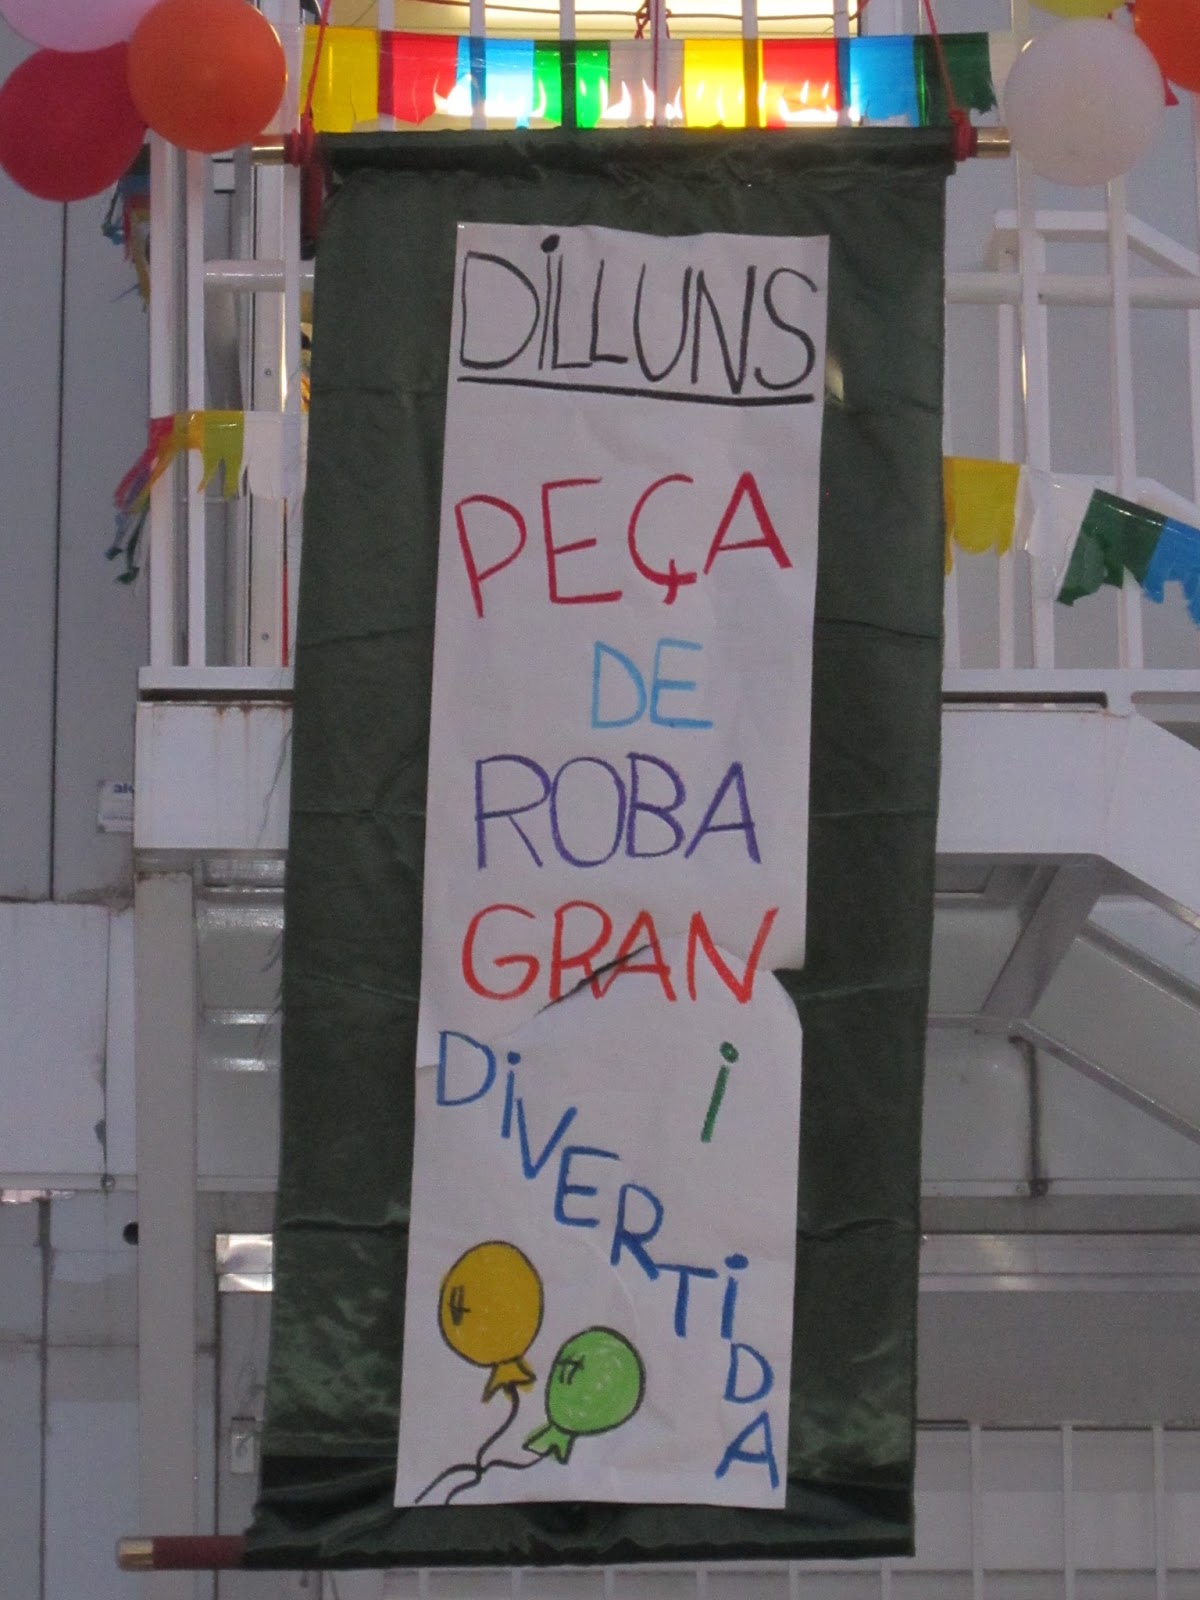 DILLUNS
PEÇA
DE
ROBA
GRAN
i
DiVERTiDA